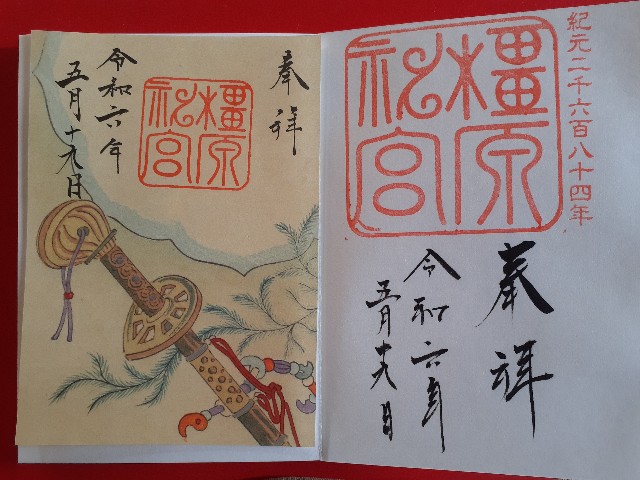 紀元二千六百八十四年
橿原
神宮
奉拝
令和六年
五月十九日
奉拝
橿原
神宮
令和六年
五月十九日